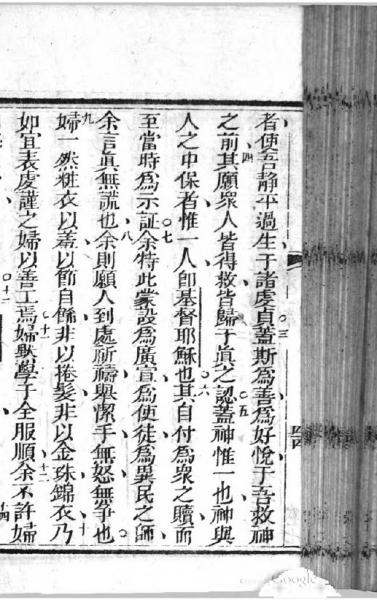 者使吾靜平過生于諸虔貞三蓋斯為善為好悅于吾救神
之前四其願眾人皆得救皆歸于真之認五蓋神惟一也神與
人之中保者惟一人卽基督耶穌也六其自付為眾之贖而
至當時為示証七余特此蒙設為廣宣為使徒為異民之師
余言眞無謊也八余則願人到處祈禱舉潔手無怒無爭也
九婦一然粧衣以羞以節自飾非以捲髮非以金珠錦衣十乃
如宜表虔謹之婦以善工焉十一婦默學于全服順十二余不許婦
Google